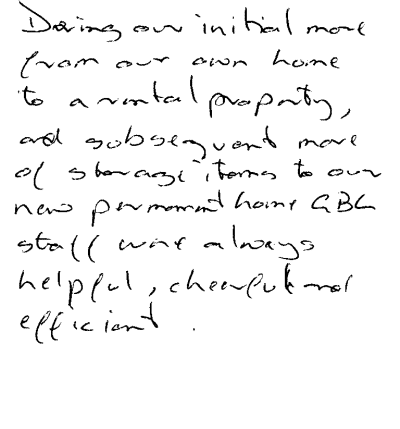 During our initial move
from our own home
to a rental property,
and subsequent move
of storage items to our
new permanent home GBG
staff were always
helpful, cheerful and
efficient.